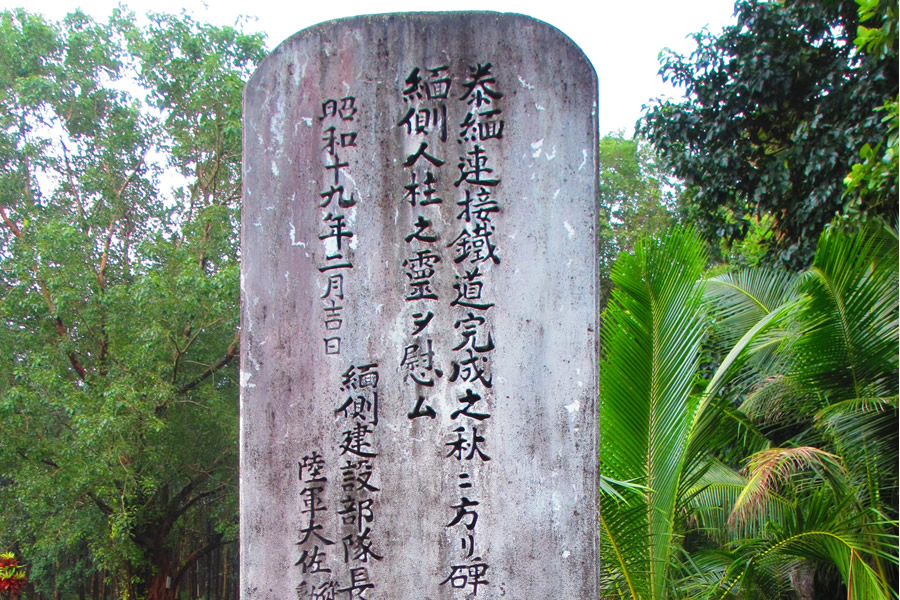 泰緬連接鐵道完成之秋ニ方リ碑
緬側人柱之靈ヲ慰ム
昭和十九年二月吉日
緬側建設部隊長
陸軍大佐